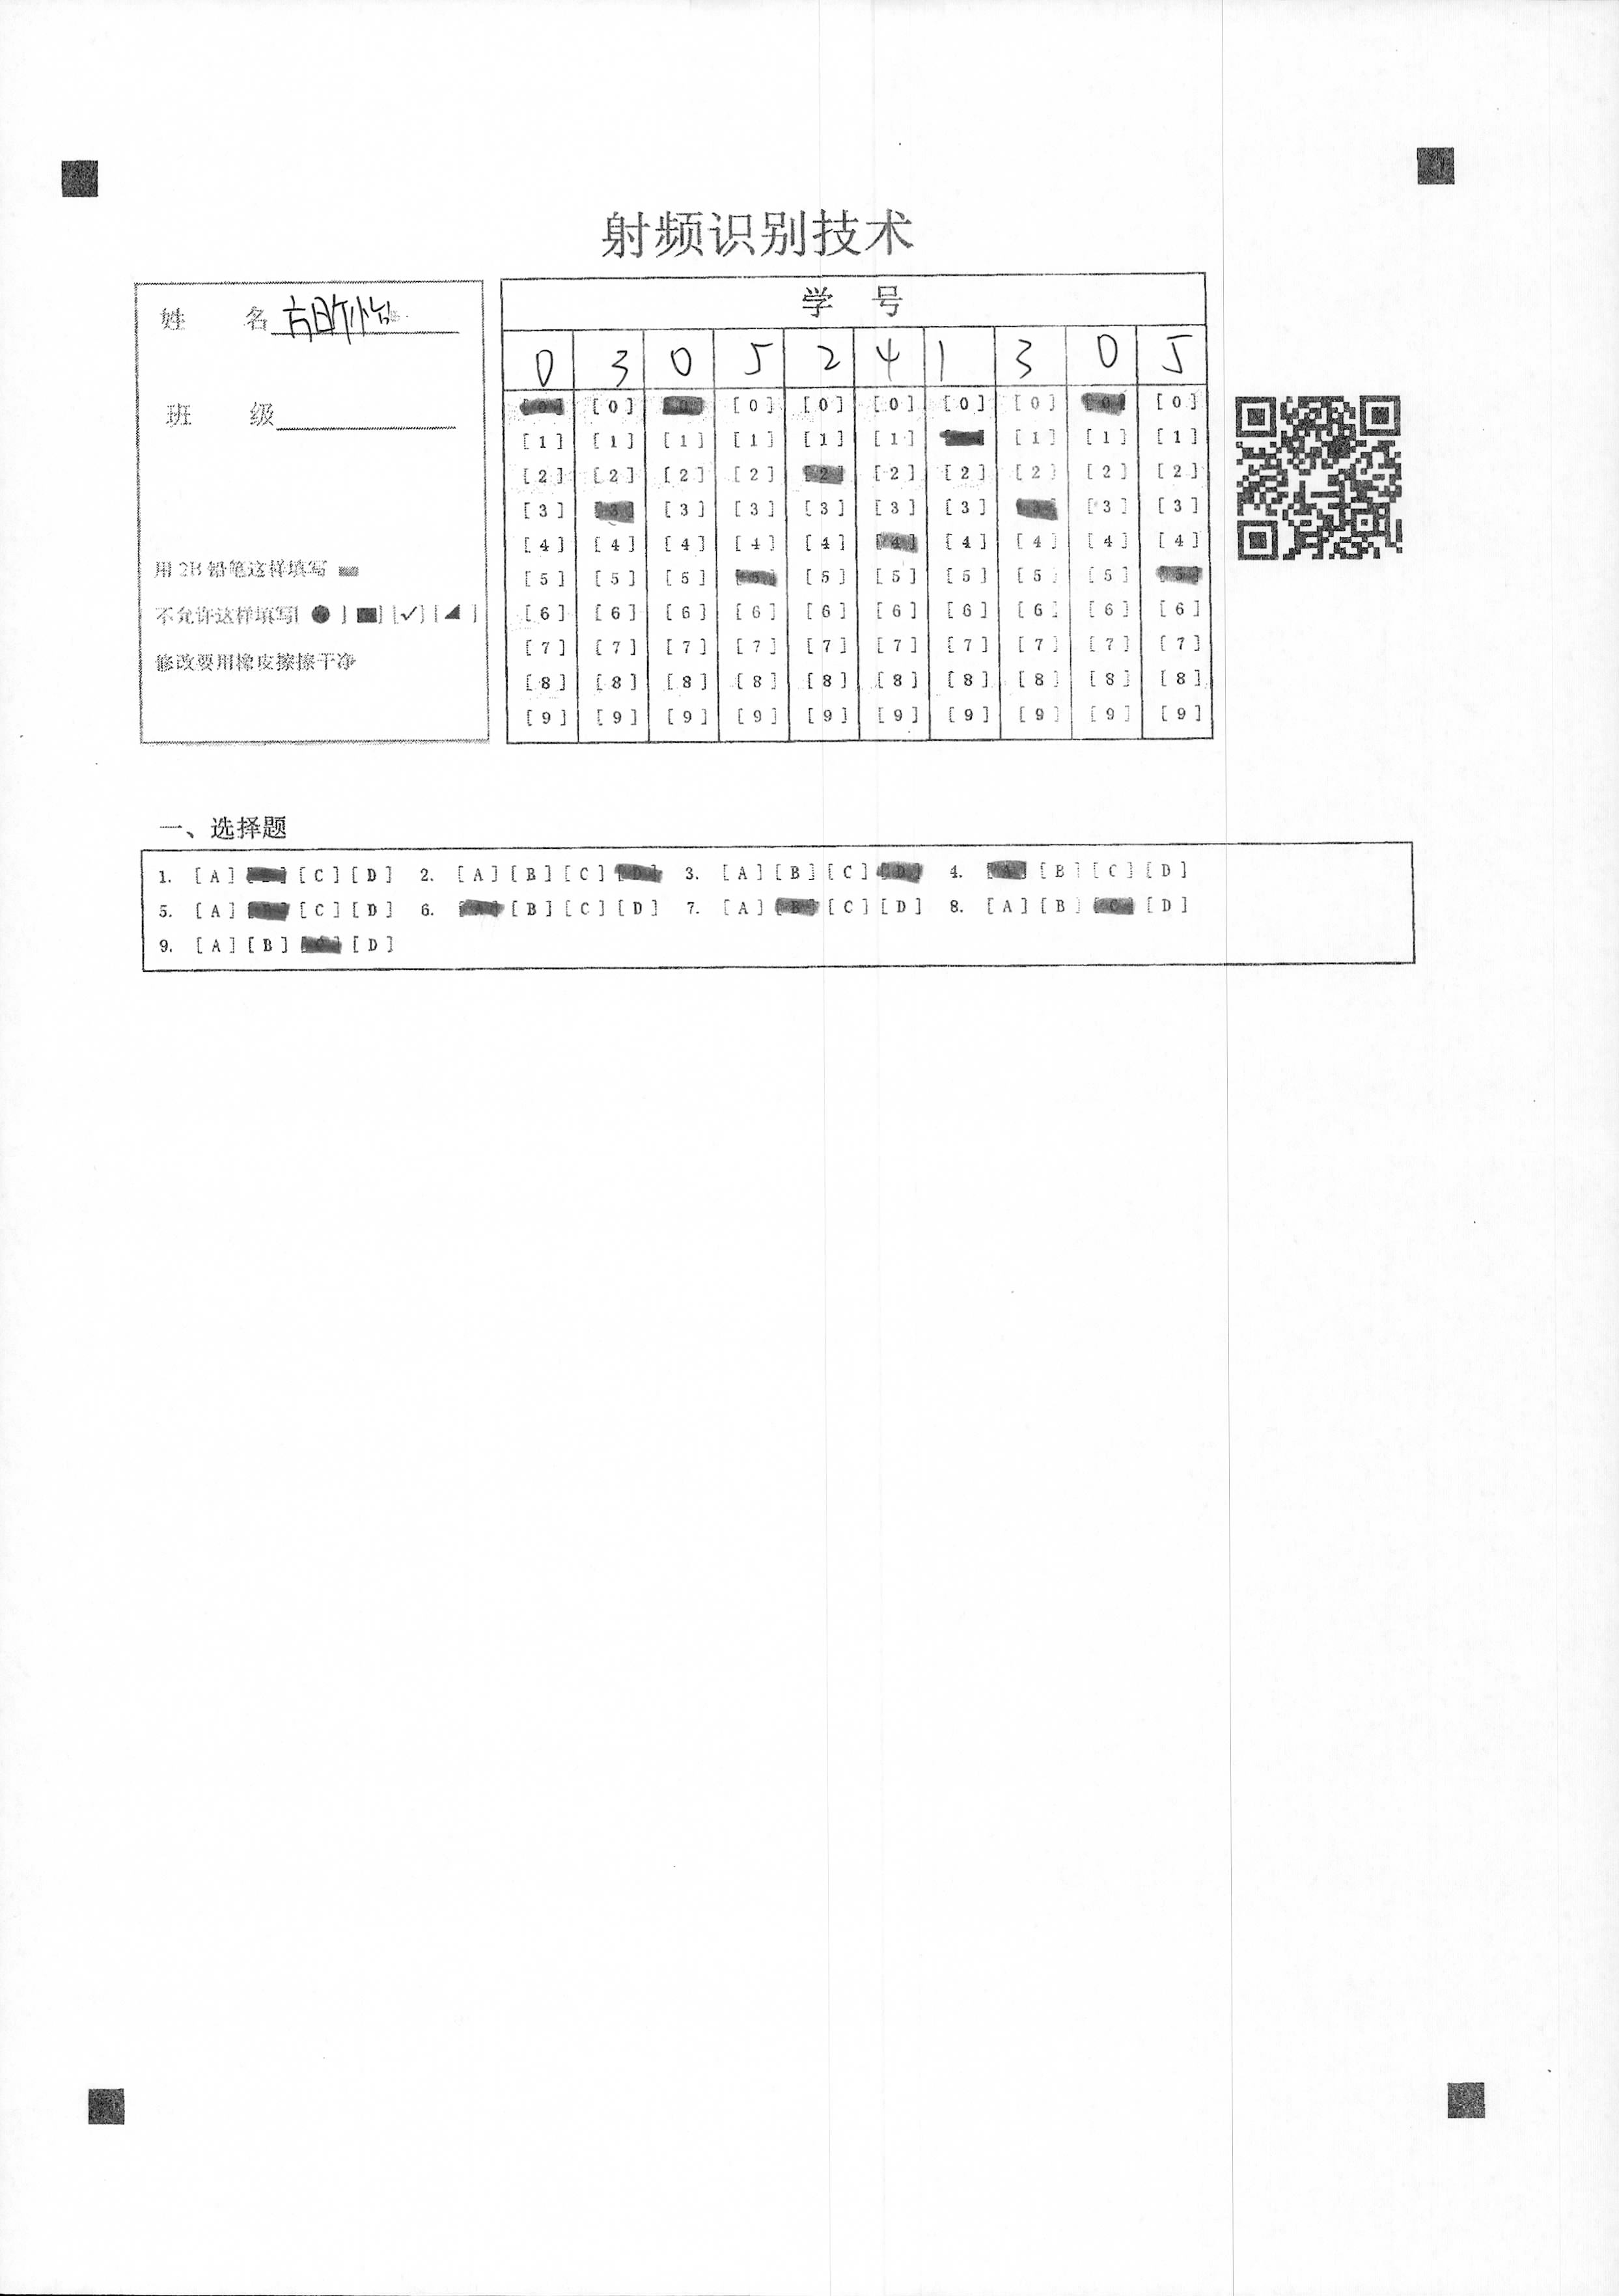 射频识别技术
姓 名 方昕怡
班 级
用 2B 铅笔这样填写
不允许这样填写[ ● ] [■] [✓] [◢ ]
修改要用橡皮擦擦干净
学 号
0 3 0 5 2 4 1 3 0 5
[0] [0] [0] [0] [0] [0] [0] [0] [0] [0]
[1] [1] [1] [1] [1] [1] [1] [1] [1]
[2] [2] [2] [2] [2] [2] [2] [2] [2] [2]
[3] [3] [3] [3] [3] [3] [3] [3] [3] [3]
[4] [4] [4] [4] [4] [4] [4] [4] [4] [4]
[5] [5] [5] [5] [5] [5] [5] [5] [5] [5]
[6] [6] [6] [6] [6] [6] [6] [6] [6] [6]
[7] [7] [7] [7] [7] [7] [7] [7] [7] [7]
[8] [8] [8] [8] [8] [8] [8] [8] [8] [8]
[9] [9] [9] [9] [9] [9] [9] [9] [9] [9]
一、选择题
1. [A] [C] [D] 2. [A] [B] [C] [D] 3. [A] [B] [C] [D] 4. [A] [B] [C] [D]
5. [A] [B] [C] [D] 6. [A] [B] [C] [D] 7. [A] [B] [C] [D] 8. [A] [B] [C] [D]
9. [A] [B] [C] [D]